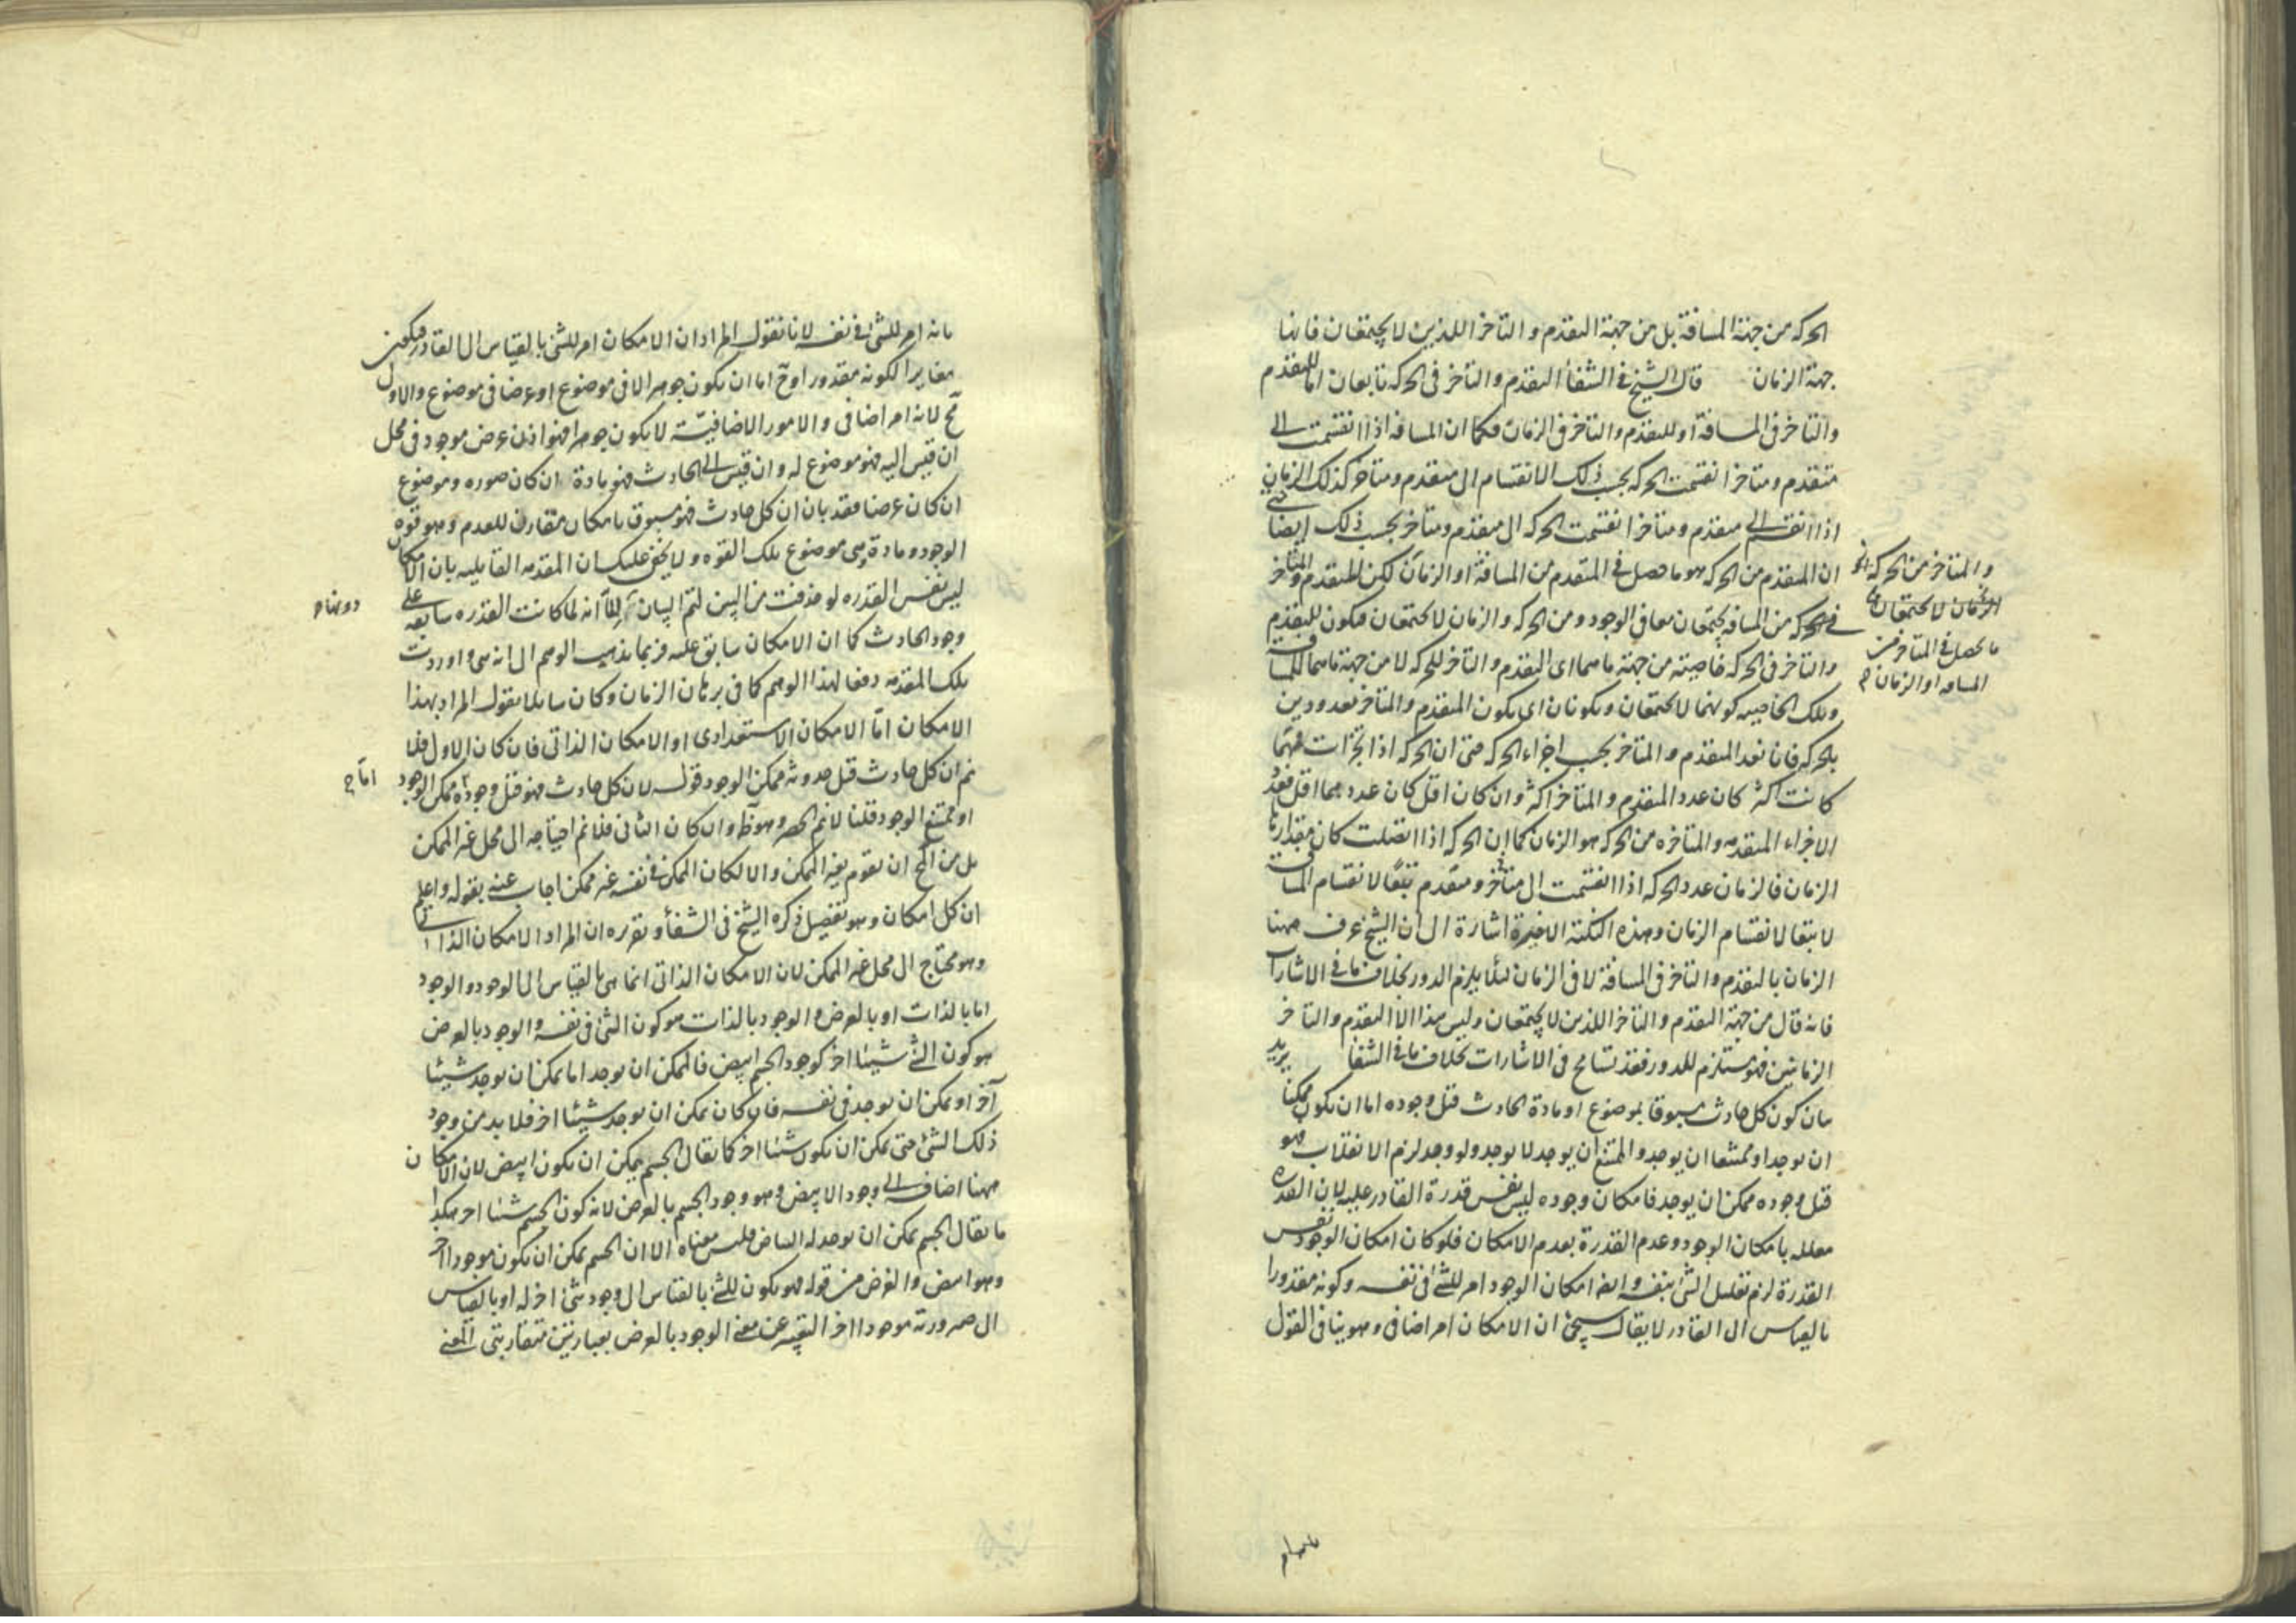 الحركة من جهة المسافة بل من جهة التقدم والتأخر اللذين لا يجتمعان فانها
جهة الزمان قال الشيخ في الشفأ التقدم والتأخر في الحركة تابعان اما للتقدم
والتأخر في المسافة او للتقدم والتأخر في الزمان فكما ان المسافة اذا انقسمت الى
متقدم ومتأخر انقسمت الحركة بحسب ذلك الانقسام الى متقدم ومتأخر كذلك الزمان
اذا انقسم الى متقدم ومتأخر انقسمت الحركة الى متقدم ومتأخر بحسب ذلك ايضا
ان المتقدم من الحركة هو ما حصل في المتقدم من المسافة او الزمان لكن للمتقدم والمتأخر
في الحركة من المسافة يجتمعان معا في الوجود ومن الحركة والزمان لا يجتمعان فيكون للتقدم
والتأخر في الحركة خاصية من جهة ما هما اى التقدم والتأخر للحركة لا من جهة ما هما للمسافة
وتلك الخاصية كونهما لا يجتمعان ويكونان اى يكون المتقدم والمتأخر معدودين
بالحركة فان تعدد المتقدم والمتأخر بحسب اجزاء الحركة حتى ان الحركة اذا تجزأت فمهما
كانت اكثر كان عدد المتقدم والمتأخر اكثر وان كان اقل كان عددهما اقل فعدد
الاجزاء المتقدمه والمتأخره من الحركة هو الزمان كما ان الحركة اذا اتصلت كان مقدارها
الزمان فالزمان عدد الحركة اذا انقسمت الى متأخر ومتقدم تبعًا لانقسام المسافة
لا تبعا لانقسام الزمان وهذه النكتة الاخيرة اشارة الى ان الشيخ عرف ههنا
الزمان بالتقدم والتأخر في المسافة لا في الزمان لئلا يلزم الدور بخلاف ما في الاشارات
فانه قال من جهة التقدم والتأخر اللذين لا يجتمعان وليس هذا الا التقدم والتأخر
الزمانيين فهو مستلزم للدور فقد تسامح في الاشارات بخلاف ما في الشفا يريد
بان كون كل حادث مسبوقا بموضوع او مادة الحادث قبل وجوده اما ان يكون ممكنا
ان يوجد او ممتنعا ان يوجد والممتنع ان يوجد لا يوجد ولو وجد لزم الانقلاب فهو
قبل وجوده ممكن ان يوجد فامكان وجوده ليس نفس قدرة القادر عليه لان القدره
معلله بامكان الوجود وعدم القدرة بعدم الامكان فلو كان امكان الوجود نفس
القدرة لزم تعليل الشئ بنفسه وايضا امكان الوجود امر للشئ في نفسه وكونه مقدورا
بالقياس الى القادر لا يقال سيجئ ان الامكان امر اضافي وهو ينافي القول
والمتأخر من الحركة
الزمان لا يجتمعان
ما يحصل في المتأخر من
المسافه او الزمان
بانه امر للشئ في نفسه لانا نقول المراد ان الامكان امر للشئ بالقياس الى القادر فيكون
مغايرا لكونه مقدورا وح اما ان يكون جوهرا لا في موضوع او عرضا في موضوع والاول
مح لانه امر اضافي والامور الاضافيّة لا يكون جوهرا فهو اذن عرض موجود في محل
ان قيس اليه فهو موضوع له وان قيس الى الحادث فهو مادة ان كان صوره وموضوع
ان كان عرضا فقد بان ان كل حادث فهو مسبوق بامكان مقارن للعدم وهو قوة
الوجود ومادة هى موضوع تلك القوه ولا يخفى عليك ان المقدمه القايليه بان الامكان
ليس نفس القدره لو حذفت من البين لتم البيان الا انه لما كانت القدره سابقه على
وجود الحادث كما ان الامكان سابق عليه فربما يذهب الوهم الى انه هى واوردت
تلك المقدمه دفعا لهذا الوهم كما في برهان الزمان وكان سايلا يقول المراد بهذا
الامكان امّا الامكان الاستعدادى او الامكان الذاتى فان كان الاول فلا
نم ان كل حادث قبل حدوثه ممكن الوجود قوله لان كل حادث فهو قبل وجوده ممكن الوجود
او ممتنع الوجود قلنا لا نم الحصر وهو ظ وان كان الثانى فلا نم احتياجه الى محل غير الممكن
بل من المح ان يقوم بغير الممكن والا لكان الممكن في نفسه غير ممكن اجاب عنه بقوله واعلم
ان كل امكان وهو تفصيل ذكره الشيخ في الشفأ وتقريره ان المراد الامكان الذاتى
وهو محتاج الى محل غير الممكن لان الامكان الذاتى انما هى بالقياس الى الوجود والوجود
اما بالذات او بالعرض والوجود بالذات هو كون الشئ في نفسه والوجود بالعرض
هو كون الشئ شيئا اخر كوجود الجسم ابيض فالممكن ان يوجد اما يمكن ان يوجد شيئا
آخر او يمكن ان يوجد في نفسه فان كان يمكن ان يوجد شيئا اخر فلا بد من وجود
ذلك الشئ حتى يمكن ان يكون شيئا اخر كما يقال الجسم يمكن ان يكون ابيض لان الامكان
ههنا اضافه الى وجود الابيض وهو وجود الجسم بالعرض لانه كون الجسم شيئا اخر هكذا
ما يقال الجسم يمكن ان يوجد له البياض فليس معناه الا ان الجسم يمكن ان يكون موجودا اخر
وهو ابيض والغرض من قوله فهو يكون للشئ بالقياس الى وجود شئ اخر له او بالقياس
الى صيرورته موجودا اخر التعبير عن معنى الوجود بالعرض بعبارتين متقاربتى المعنى
اما